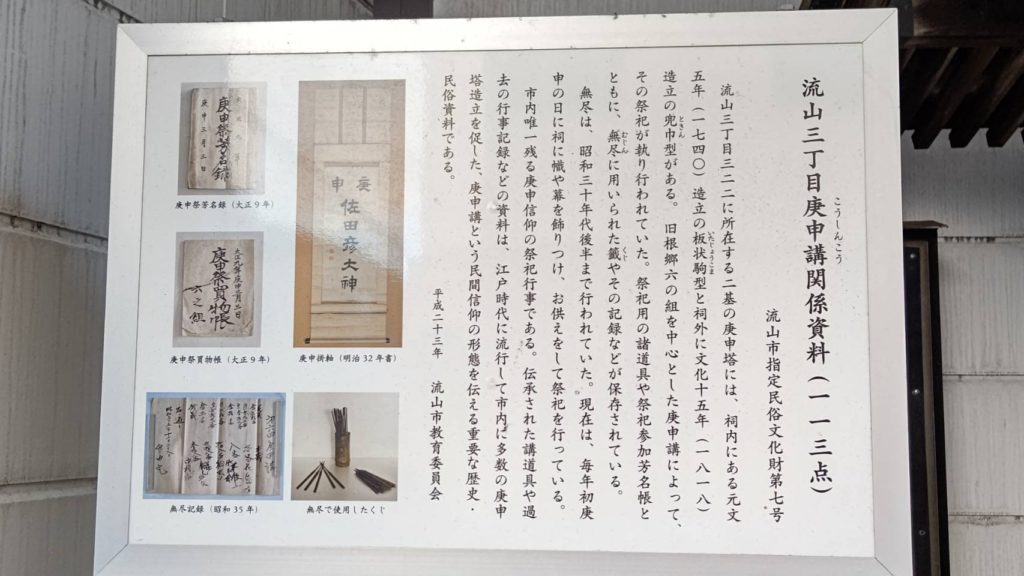 流山三丁目庚申講関係資料(一一三点)
こうしんこう
流山市指定民俗文化財第七号
流山三丁目三二二に所在する二基の庚申塔には、祠内にある元文
五年(一七四〇)造立の板状駒型と祠外に文化十五年(一八一八)
いたじょうこま
造立の兜巾型がある。旧根郷六の組を中心とした庚申講によって、
ときん
その祭祀が執り行われていた。祭祀用の諸道具や祭祀参加芳名帳と
ともに、無尽に用いられた籤やその記録などが保存されている。
むじん
くじ
無尽は、昭和三十年代後半まで行われていた。現在は、毎年初庚
申の日に祠に幟や幕を飾りつけ、お供えをして祭祀を行っている。
市内唯一残る庚申信仰の祭祀行事である。伝承された講道具や過
去の行事記録などの資料は、江戸時代に流行して市内に多数の庚申
塔造立を促した、庚申講という民間信仰の形態を伝える重要な歴史・
民俗資料である。
平成二十三年 流山市教育委員会
庚申
佐田彦大神
庚申掛軸(明治32年書)
庚申祭芳名録
庚申三月二日
庚申祭芳名録(大正9年)
庚申祭買物帳
六之組
庚申祭買物帳(大正9年)
無尽で使用したくじ
無尽記録(昭和35年)